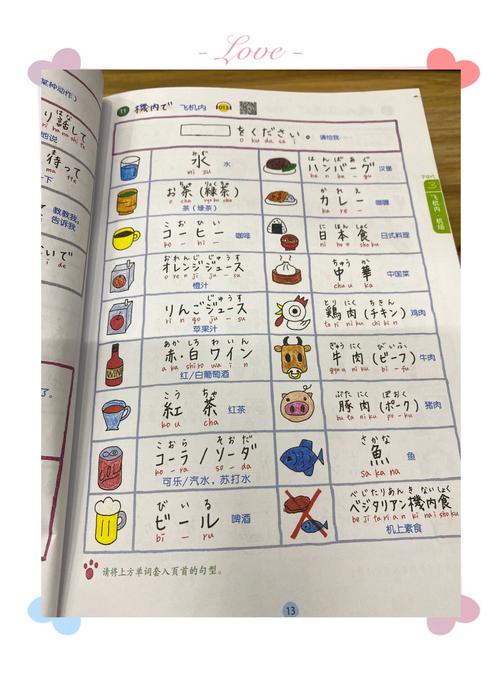 - Love -
某种动作）
はな
り話して
ri hanashite
他说
ま
待って
ma tte
一下
教教我、
告诉我
いで
i de
了。
11 機内で 飞机内 013
をください。 请给我……
o ku da sa i
みず
水 水
mi zu
はんばあぐ
ハンバーグ 汉堡
ha n ba a gu
ちゃ りょくちゃ
お茶（緑茶）
o cha ryoku cha
茶（绿茶）
かれえ
カレー 咖喱
ka re - e
こおひい
コーヒー 咖啡
ko - hi -
に ほんしょく
日本食 日式料理
ni ho n sho ku
おれんじじゅうす
オレンジジュース
o re n ji ju - su
橙汁
ちゅう か
中華 中国菜
chu u ka
りんごじゅうす
りんごジュース
ri n go ju - su
苹果汁
とり にく ちきん
鶏肉（チキン） 鸡肉
to ri ni ku chi ki n
あか しろ わいん
赤・白ワイン
a ka shi ro wa i n
红/白葡萄酒
ぎゅう にく びいふ
牛肉（ビーフ） 牛肉
gyu u ni ku bi - fu
こう ちゃ
紅茶 红茶
ko u cha
ぶた にく ぽおく
豚肉（ポーク） 猪肉
bu ta ni ku po - ku
こおら そおだ
コーラ/ソーダ
ko - ra so - da
可乐/汽水，苏打水
さかな
魚 鱼
sa ka na
びいる
ビール 啤酒
bi - ru
べじたりあん き ないしょく
ベジタリアン機内食
be ji ta ri a n ki nai sho ku
机上素食
请将上方单词套入页首的句型。
Part
3
飞机内・机场
13